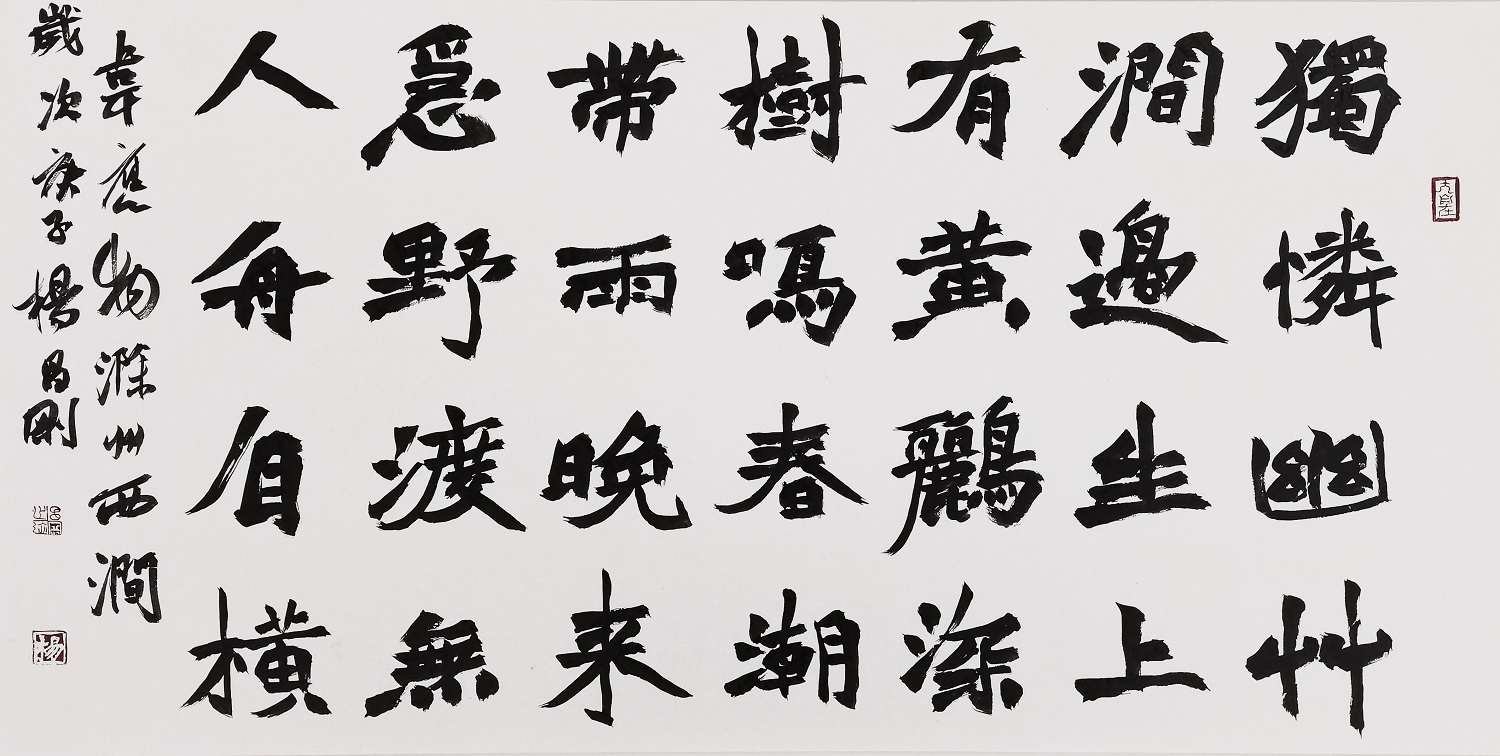 獨憐幽艸
澗邊生上
有黃鸝深
樹鳴春潮
帶雨晚來
急野渡無
人舟自橫
韋應物滁州西澗
歲次庚子楊昌剛
楊